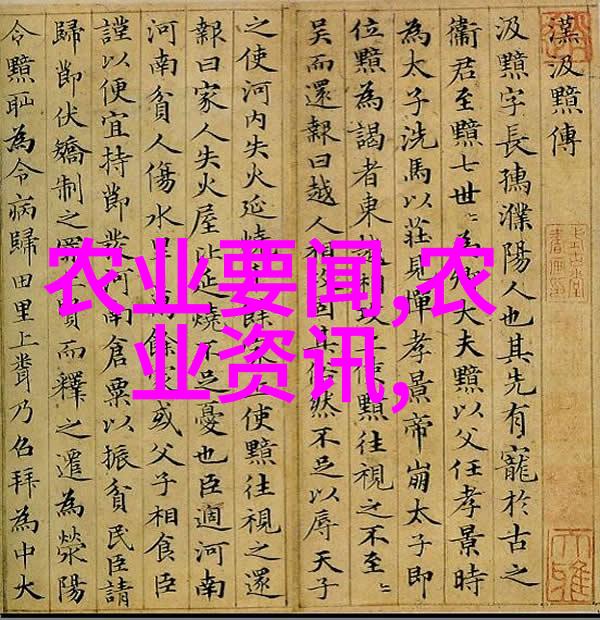 漢汲黯傳
汲黯字長孺濮陽人也其先有寵於古之
衞君至黯七世〻為卿大夫黯以父任孝景時
為太子洗馬以莊見憚孝景帝崩太子即
位黯為謁者東越相攻上使黯往視之不至〻
吳而還報曰越人相固其俗然不足以辱天子
之使河内失火延燒千餘家上使黯往視之還
報曰家人失火屋比延燒不足憂也臣適河南
河南貧人傷水旱萬餘家或父子相食臣
謹以便宜持節發河南倉粟以振貧民臣請
歸節伏矯制之罪上賢而釋之遷為滎陽
令黯恥為令病歸田里上聞乃召拜為中大
农业要闻,农
业资讯,